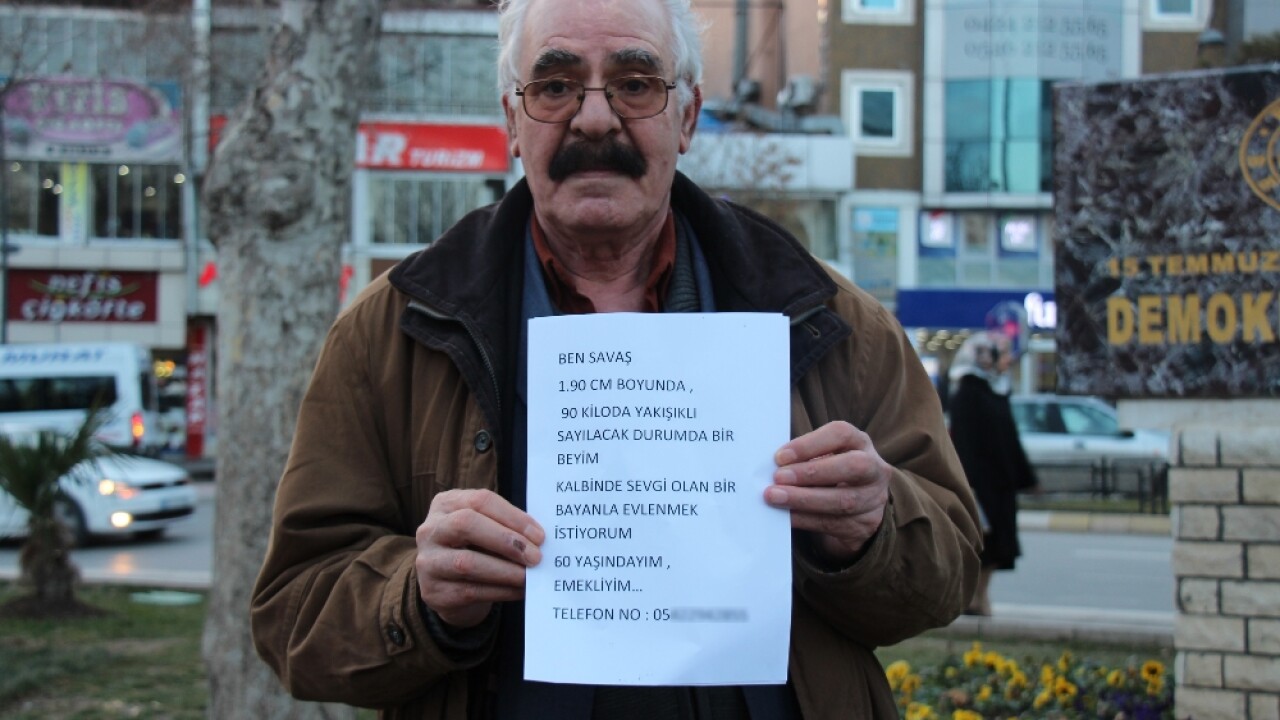 AR TURİZM
nefis
çiğköfte
15 TEMMUZ
DEMOK
BEN SAVAŞ
1.90 CM BOYUNDA ,
90 KİLODA YAKIŞIKLI
SAYILACAK DURUMDA BİR
BEYİM
KALBİNDE SEVGİ OLAN BİR
BAYANLA EVLENMEK
İSTİYORUM
60 YAŞINDAYIM ,
EMEKLİYİM...
TELEFON NO : 05